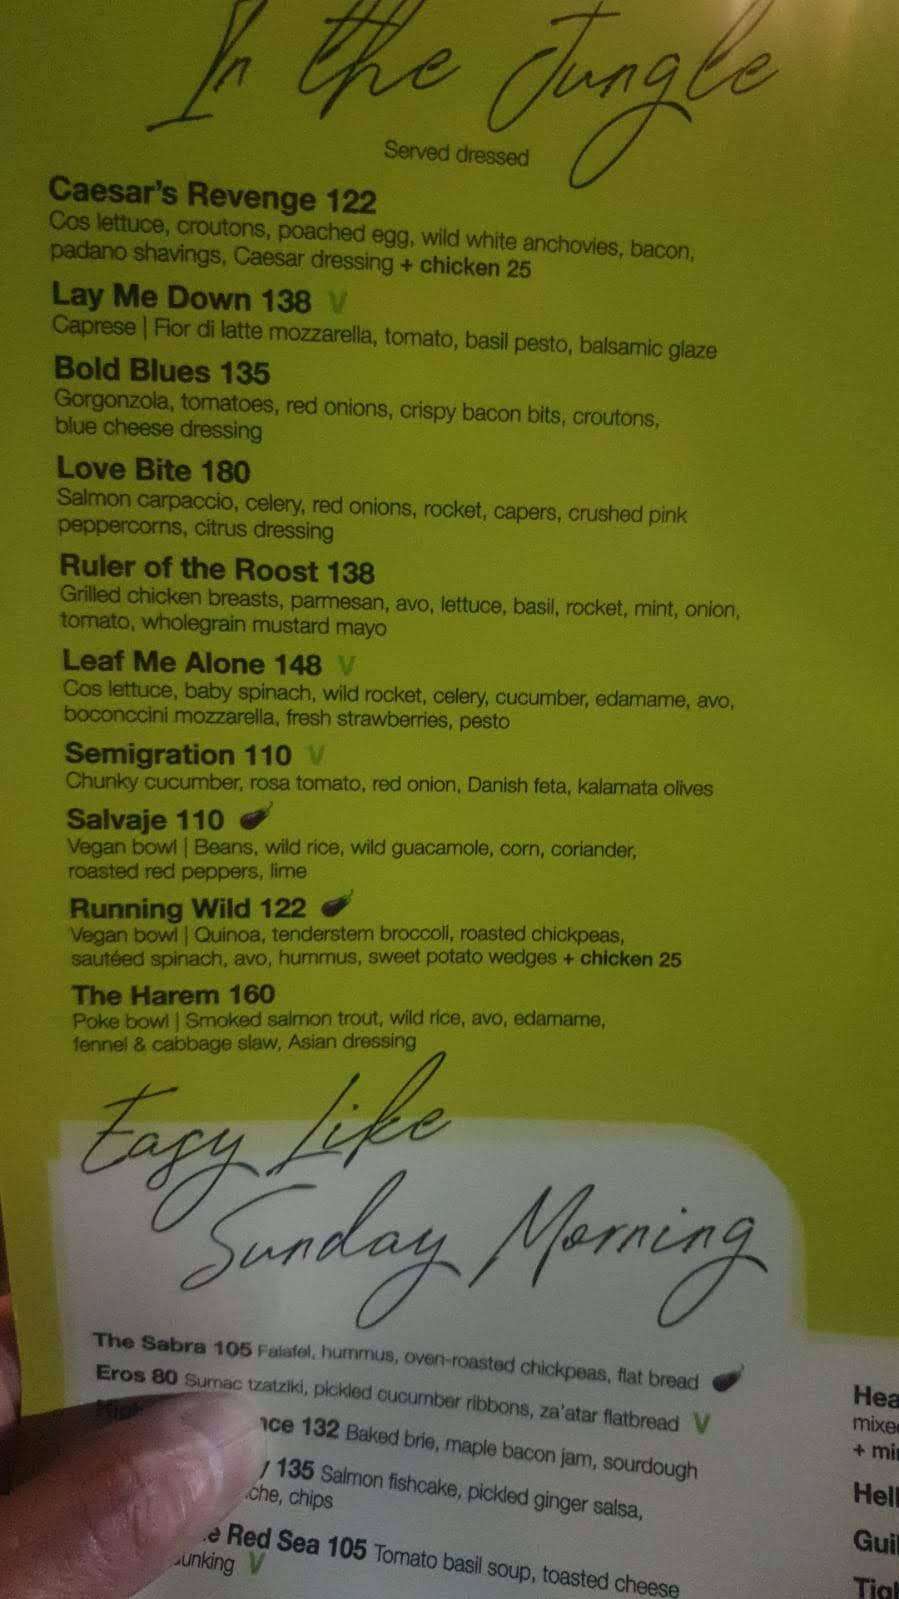 In the Jungle
Served dressed
Caesar's Revenge 122
Cos lettuce, croutons, poached egg, wild white anchovies, bacon,
padano shavings, Caesar dressing + chicken 25
Lay Me Down 138 V
Caprese | Fior di latte mozzarella, tomato, basil pesto, balsamic glaze
Bold Blues 135
Gorgonzola, tomatoes, red onions, crispy bacon bits, croutons,
blue cheese dressing
Love Bite 180
Salmon carpaccio, celery, red onions, rocket, capers, crushed pink
peppercorns, citrus dressing
Ruler of the Roost 138
Grilled chicken breasts, parmesan, avo, lettuce, basil, rocket, mint, onion,
tomato, wholegrain mustard mayo
Leaf Me Alone 148 V
Cos lettuce, baby spinach, wild rocket, celery, cucumber, edamame, avo,
boconccini mozzarella, fresh strawberries, pesto
Semigration 110 V
Chunky cucumber, rosa tomato, red onion, Danish feta, kalamata olives
Salvaje 110
Vegan bowl | Beans, wild rice, wild guacamole, corn, coriander,
roasted red peppers, lime
Running Wild 122
Vegan bowl | Quinoa, tenderstem broccoli, roasted chickpeas,
sautéed spinach, avo, hummus, sweet potato wedges + chicken 25
The Harem 160
Poke bowl | Smoked salmon trout, wild rice, avo, edamame,
fennel & cabbage slaw, Asian dressing
Easy Like
Sunday Morning
The Sabra 105 Falafel, hummus, oven-roasted chickpeas, flat bread
Eros 80 Sumac tzatziki, pickled cucumber ribbons, za'atar flatbread V
132 Baked brie, maple bacon jam, sourdough
135 Salmon fishcake, pickled ginger salsa,
chips
Red Sea 105 Tomato basil soup, toasted cheese
V